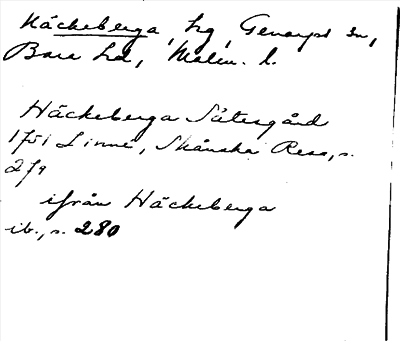 Häckeberga, hg, Genarps sn,
Bara hd, Malm. l.
Häckeberga Sätesgård
1751 Linné, Skånska Resa, s.
279
ifrån Häckeberga
ib., s. 280